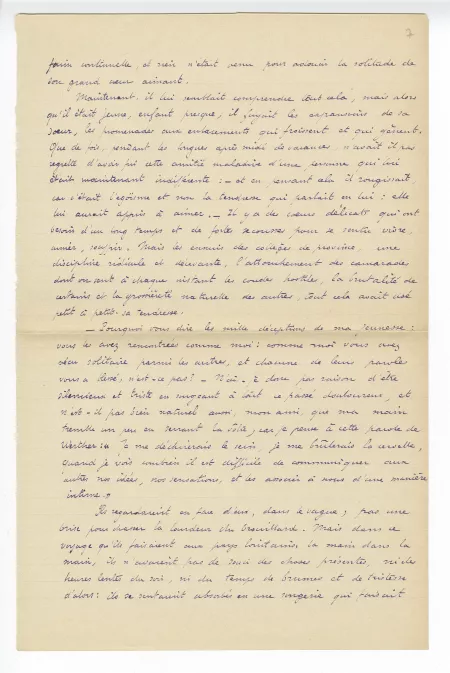 7
faim continuelle, et rien n'était venu pour adoucir la solitude de
son grand cœur aimant.
Maintenant il lui semblait comprendre tout cela, mais alors
qu'il était jeune, enfant presque, il fuyait les expansions de sa
sœur, les promenades aux enlacements qui froissent et qui gênent.
Que de fois, pendant les longues après midi de vacances, n'avait il pas
regretté d'avoir fui cette amitié maladive d'une femme qui lui
était maintenant indifférente : — et en pensant cela il rougissait,
car c'était l'égoïsme et non la tendresse qui parlait en lui : elle
lui aurait appris à aimer. — Il y a des cœurs délicats qui ont
besoin d'un long temps et de fortes secousses pour se sentir vivre,
aimer, souffrir. Mais les ennuis des collèges de province, une
discipline ridicule et déprimante, l'attouchement des camarades
dont on sent à chaque instant les coudes hostiles, la brutalité de
certains et la grossièreté naturelle des autres, tout cela avait usé
petit à petit sa tendresse.
— Pourquoi vous dire les mille déceptions de ma jeunesse :
vous les avez rencontrées comme moi : comme moi vous avez
vécu solitaire parmi les autres, et chacune de leurs paroles
vous a blessé, n'est-ce pas ? — N'ai-je donc pas raison d'être
silencieux et triste en songeant à tout ce passé douloureux, et
n'est-il pas bien naturel aussi, mon ami, que ma main
tremble un peu en serrant la vôtre, car je pense à cette parole de
Werther : « Je me déchirerais le sein, je me brûlerais la cervelle,
quand je vois combien il est difficile de communiquer aux
autres nos idées, nos sensations, et les associer à nous d'une manière
intime. »
Ils regardaient en face d'eux, dans le vague ; pas une
brise pour chasser la lourdeur du brouillard. Mais dans ce
voyage qu'ils faisaient aux pays lointains, la main dans la
main, ils n'avaient pas de souci des choses présentes, ni des
heures lentes du soir, ni du temps de brumes et de tristesse
d'alors : ils se sentaient absorbés en une songerie qui faisait